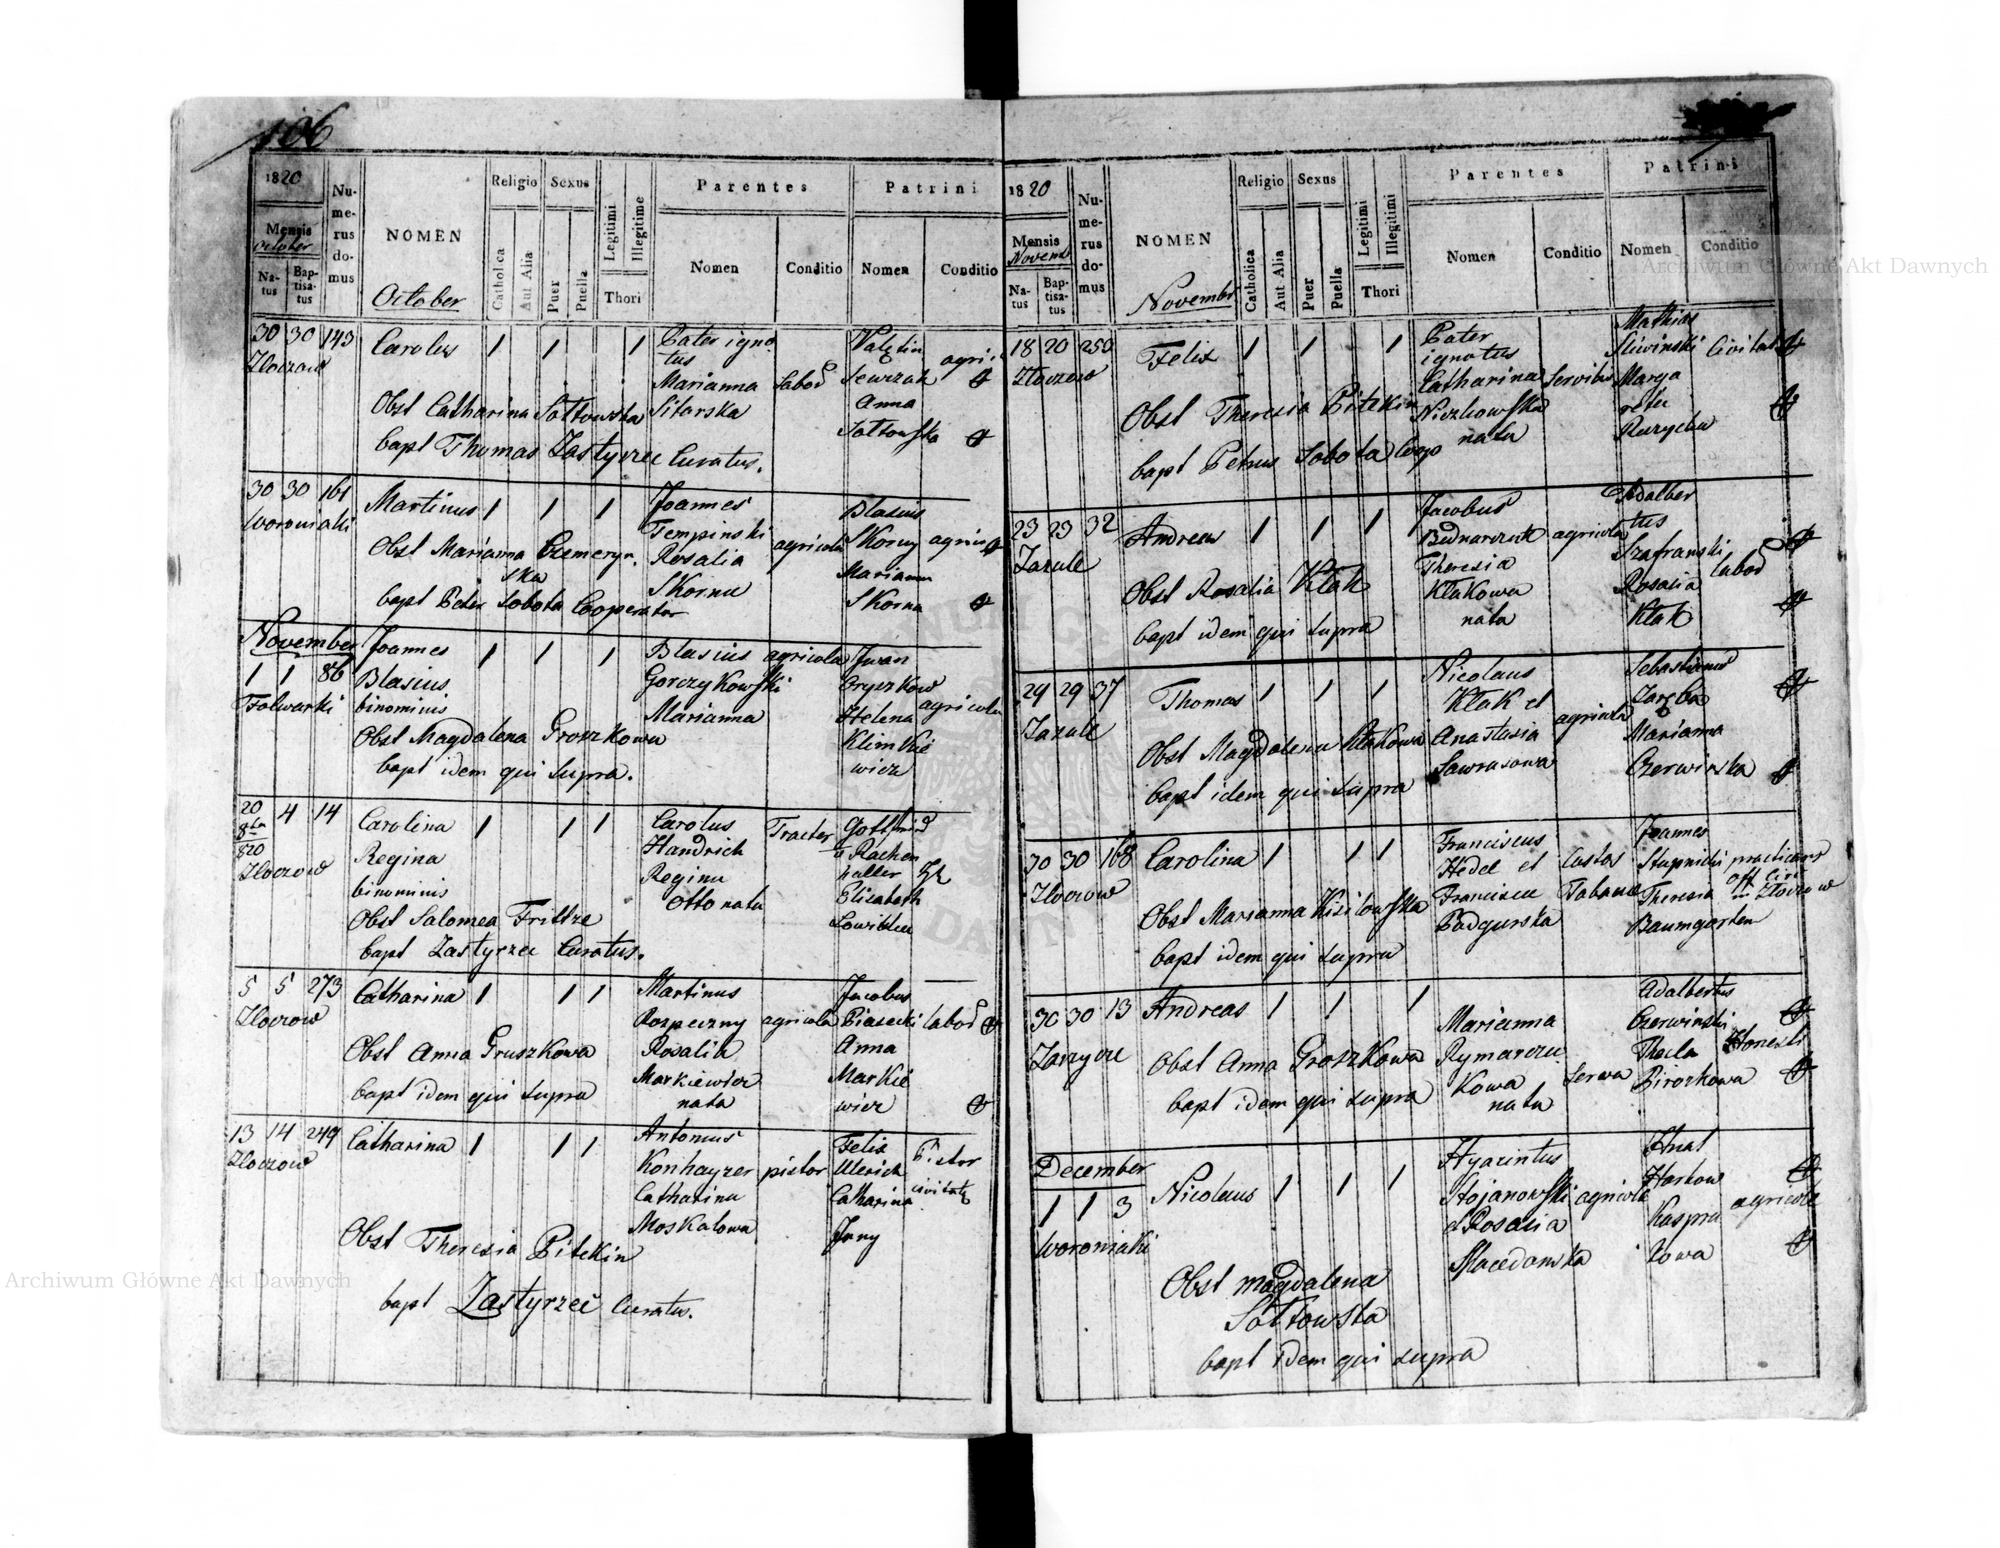 106
1820
Mensis
October
Na-
tus
Bap-
tisa-
tus
Nu-
me-
rus
do-
mus
NOMEN
October
Religio
Catholica
Aut Alia
Sexus
Puer
Puella
Legitimi
Illegitime
Thori
Parentes
Nomen
Conditio
Patrini
Nomen
Conditio
30 30 143
Złoczow
Carolus 1 1 1
Pater igno
tus
Marianna
Sitarska
Labor
Valętin
Sewrzak
Anna
Sołtowska
Obst Catharina Sołtowska
bapt Thomas Zastyrzec Curatus.
30 30 161
Woroniaki
Martinus 1 1 1
Joannes
Tempinski
Rosalia
Skorna
agricola
Blasius
Skorny
Marianna
Skorna
Obst Marianna Czemeryn.
ska
bapt Peter Sobota Cooperator
November
1 1 86
Folwarki
Joannes
Blasius
binominis
1 1 1
Blasius
Gorczykowski
Marianna
agricola
Iwan
Oryszkow
Helena
Klimkie
wicz
agricola
Obst Magdalena Groszkowa
bapt idem qui supra.
20
8bra
820
4 14
Złoczow
Carolina
Regina
binominis
1 1 1
Carolus
Handrich
Regina
Otto nata
Tracter
Gottfrid
Elisabeth
Obst Salomea Frittze
bapt Zastyrzec Curatus.
5 5 273
Złoczow
Catharina 1 1 1
Martinus
Rozpeczny
Rosalia
Markiewicz
nata
agricola
Jacobus
Piasecki
Anna
Markie
wicz
Labor
Obst Anna Gruszkowa
bapt idem qui supra
13 14 249
Złoczow
Catharina 1 1 1
Antonius
Konhayzer
Catharina
Moskalowa
pistor
Felix
Ulrich
Catharina
Jany
Pistor
civitatis
Obst Theresia Pitekin
bapt Zastyrzec Curatus.
1820
Mensis
Novemb
Na-
tus
Bap-
tisa-
tus
Nu-
me-
rus
do-
mus
NOMEN
Novembr
Religio
Catholica
Aut Alia
Sexus
Puer
Puella
Legitimi
Illegitimi
Thori
Parentes
Nomen
Conditio
Patrini
Nomen
Conditio
18 20 250
Złoczow
Felix 1 1 1
Pater
ignotus
Catharina
Niezkowska
nata
Mathias
Sliwinski
Marga
reta
Ruzycka
Obst Theresia Pitekin
bapt Petrus Sobota Coop
23 23 32
Zazule
Andreas 1 1 1
Jacobus
Bednarczuk
Theresia
Kłakowa
nata
agricola
Adalber
tus
Szafranski
Rosalia
Kłak
Labor
Obst Rosalia Kłak
bapt idem qui supra
29 29 37
Zazule
Thomas 1 1 1
Nicolaus
Kłak et
Anastasia
Sawrasowa
agricola
Sebastianus
Zaręba
Marianna
Czerwinska
Obst Magdalena Kłakowa
bapt idem qui supra
30 30 168
Złoczow
Carolina 1 1 1
Franciscus
Hedel et
Francisca
Podgurska
Custos
Tabacae
Joannes
Stupnicki
Theresia
Baumgarten
practicans
off Circ
in Złoczow
Obst Marianna Kisilowska
bapt idem qui supra
30 30 13
Zarzyce
Andreas 1 1 1
Marianna
Rymarczu
kowa
nata
serva
Adalbertus
Czerwinski
Thecla
Pirozkowa
Honesti
Obst Anna Groszkowa
bapt idem qui supra
December
1 1 3
Woroniaki
Nicolaus 1 1 1
Hyacintus
Stojanowski
et Rosalia
Macedonska
agricola
Hnat
Harkow
Kaspra
kowa
agricola
Obst Magdalena
Sołtowska
bapt idem qui supra
Archiwum Główne Akt Dawnych
Archiwum Główne Akt Dawnych